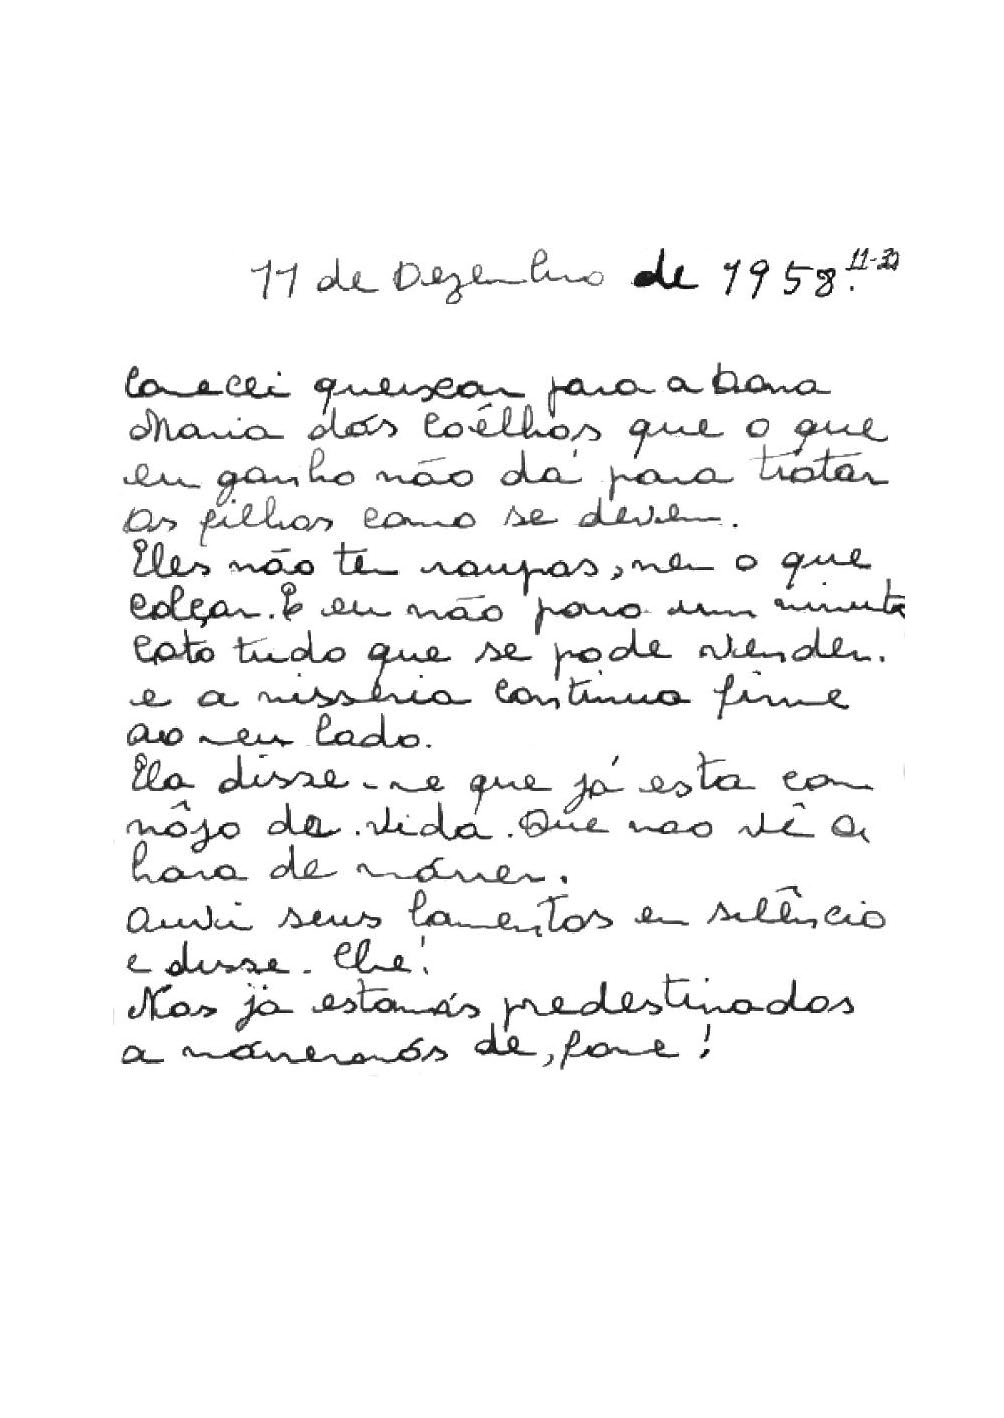 11 de Dezembro de 1958. 11-32
Comecei queixar para a Dona
Maria dós Coêlhos que o que
eu ganho não dá para tratar
os filhos como se devem.
Eles não tem roupas, nem o que
calçar. E eu não paro um minuto
Cato tudo que se pode vender.
e a misséria continua firme
ao meu lado.
Ela disse-me que já esta com
nôjo da vida. Que nao vê a
hora de mórrer.
Ouvi seus lamentos em silêncio
e disse. Che!
Nos já estamós predestinados
a mórrermós de, fome!